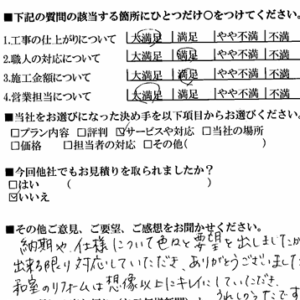 ■下記の質問の該当する箇所にひとつだけ○をつけてください。
1.工事の仕上がりについて 大満足 満足 やや不満 不満
2.職人の対応について 大満足 満足 やや不満 不満
3.施工金額について 大満足 満足 やや不満 不満
4.営業担当について 大満足 満足 やや不満 不満
■当社をお選びになった決め手を以下項目からお選びください。
□プラン内容 □評判 ☑サービスや対応 □当社の場所
□価格 □担当者の対応 □その他(
■今回他社でもお見積りを取られましたか?
□はい ( )
☑いいえ
■その他ご意見、ご要望、ご感想をお聞かせください。
納期や、仕様について色々と要望を出しましたが
出来る限り対応していただき、ありがとうございました
和室のリフォームは想像以上にキレイにしていただき、
うれしかったです